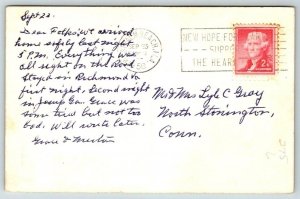 Sept 22.
Dear Folks: We arrived
home safely last night
5 P.M. Everything was
all right on the Road
Stayed in Richmond Va
first night, Second night
in Jesup Ga. Grace was
some tired but not too
bad. Will write later.
Grace & Newton
NEW HOPE FOR
THE HEAR
2¢
Mr & Mrs Lyle C Gray
North Stonington,
Conn.